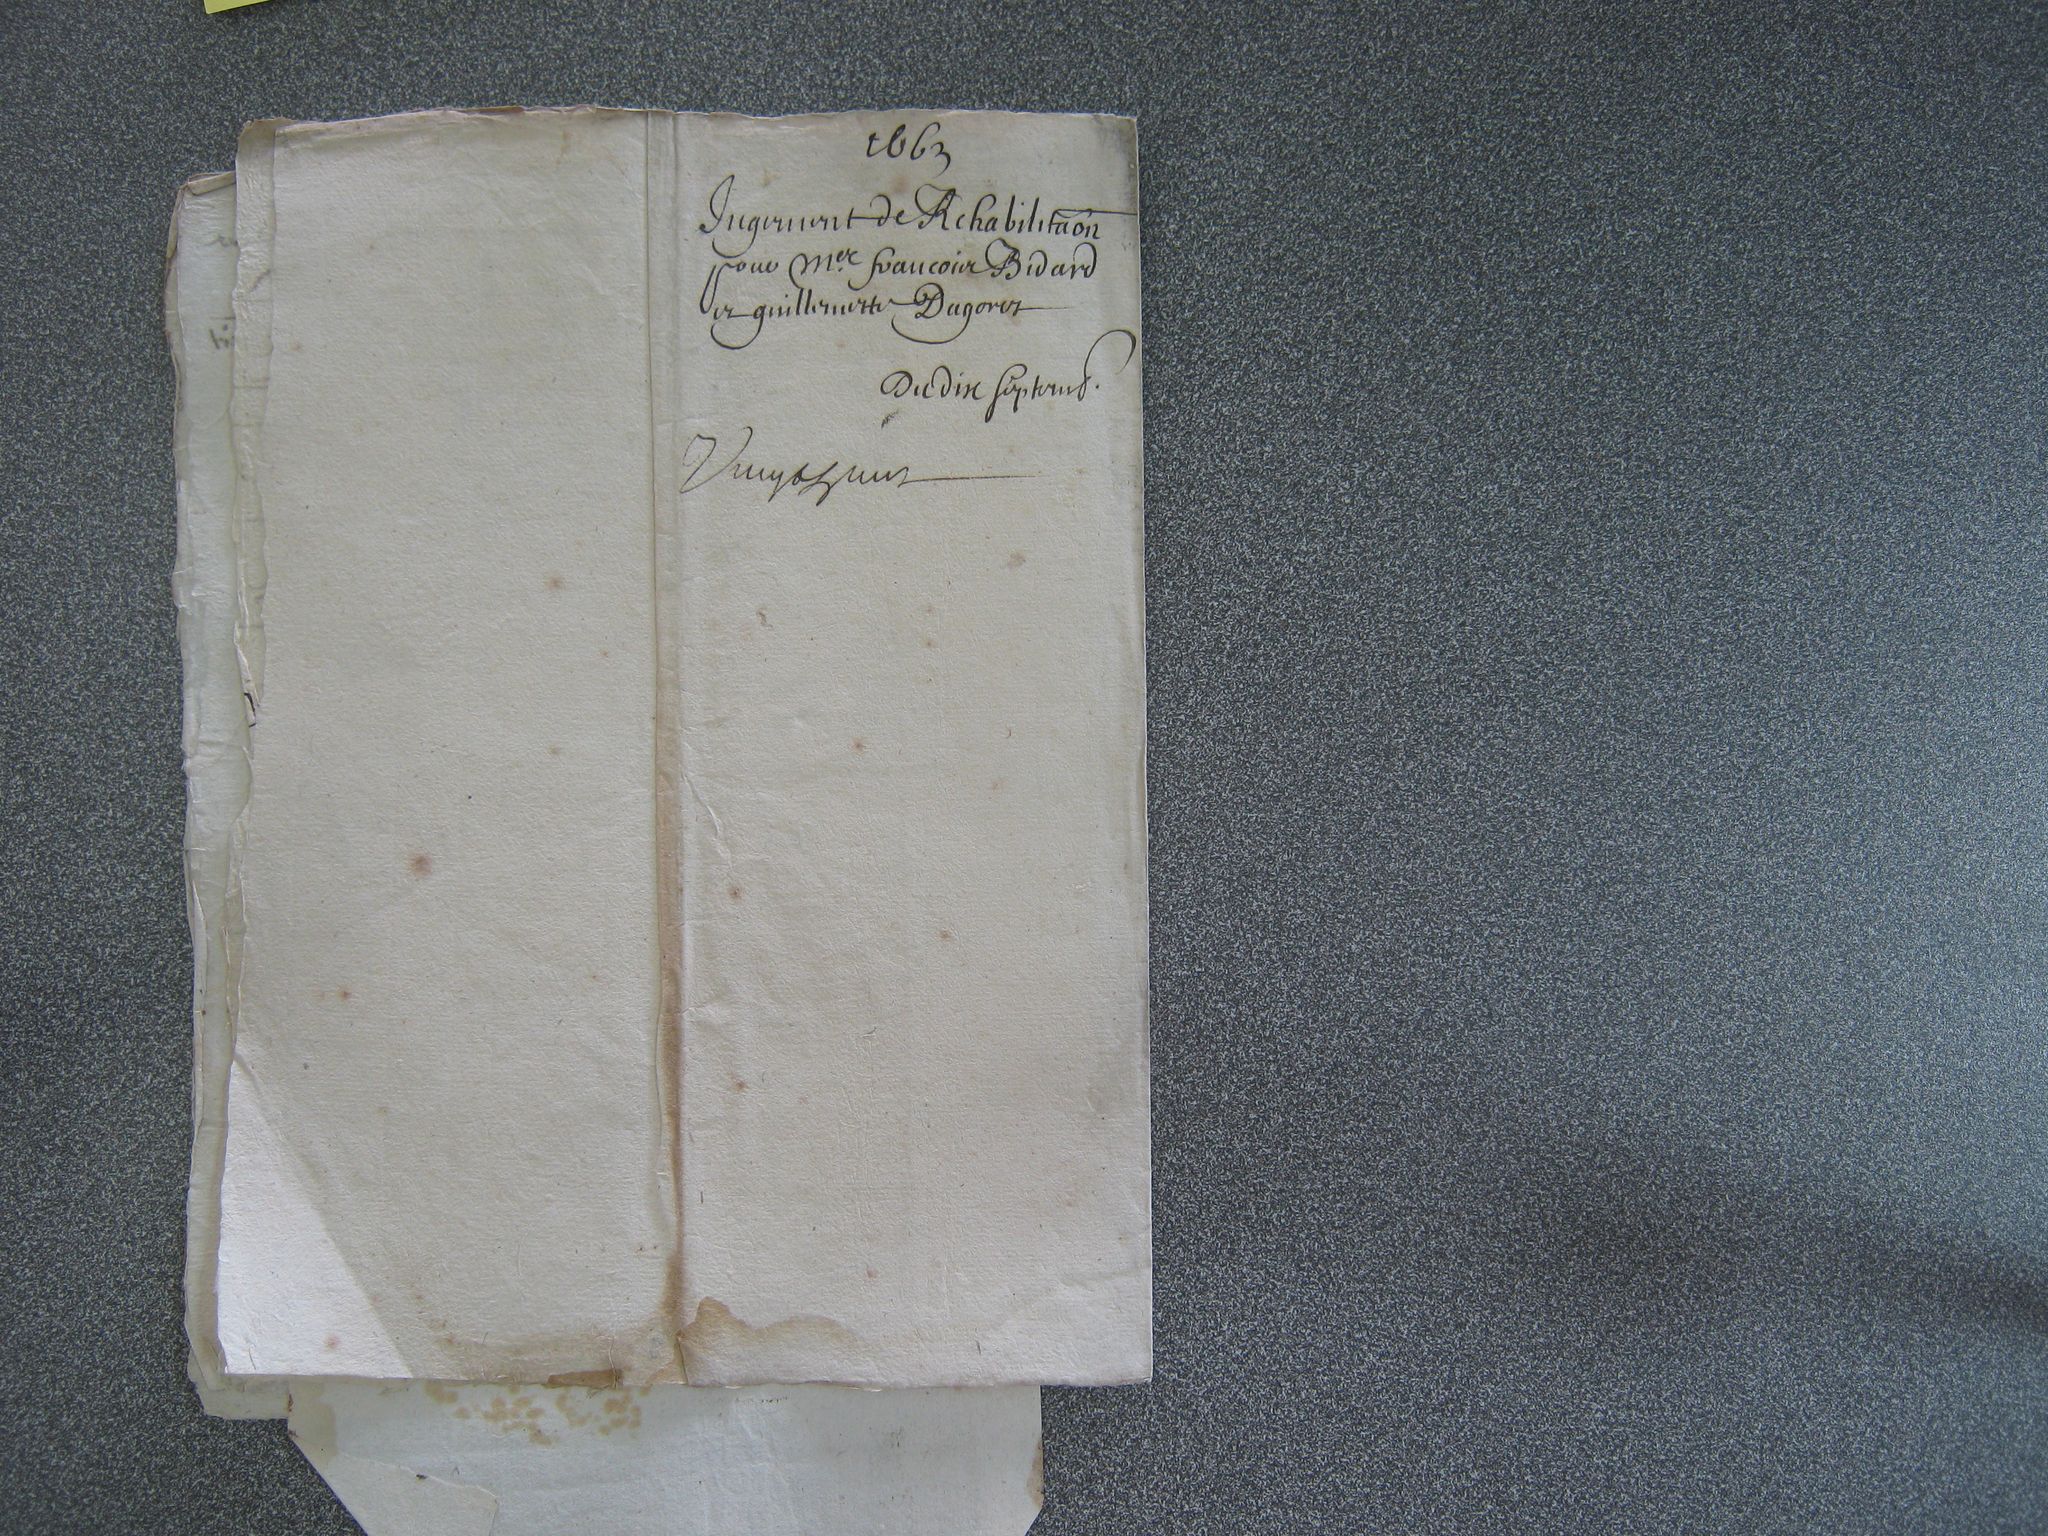 1663
Jugement de Rehabilitaõn
pour Mer francois Bidard
et guillemette Dagoret
Du dix septemb.